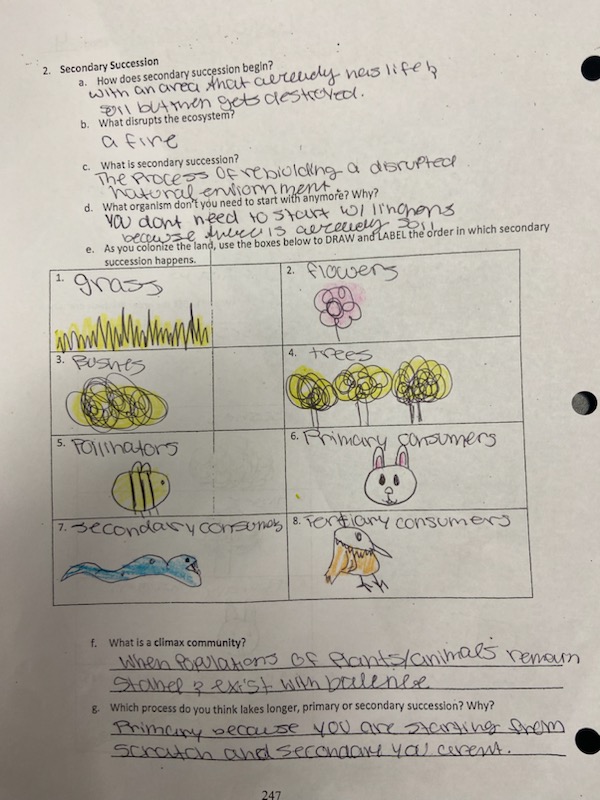 2. Secondary Succession
a. How does secondary succession begin?
with an area that already has life &
soil but then gets destroyed.
b. What disrupts the ecosystem?
a fire
c. What is secondary succession?
The process of rebiulding a disrupted
natural enviornment.
d. What organism don't you need to start with anymore? Why?
You dont need to start w/ linchens
because there is already soil
e. As you colonize the land, use the boxes below to DRAW and LABEL the order in which secondary
succession happens.
1. grass
2. flowers
3. Bushes
4. trees
5. Pollinators
6. Primary consumers
7. secondary consumers
8. Tertiary consumers
f. What is a climax community?
when populations of plants/animals remain
stabel & exist with balence
g. Which process do you think takes longer, primary or secondary succession? Why?
Primary because you are starting from
scratch and secondary you arent.
247